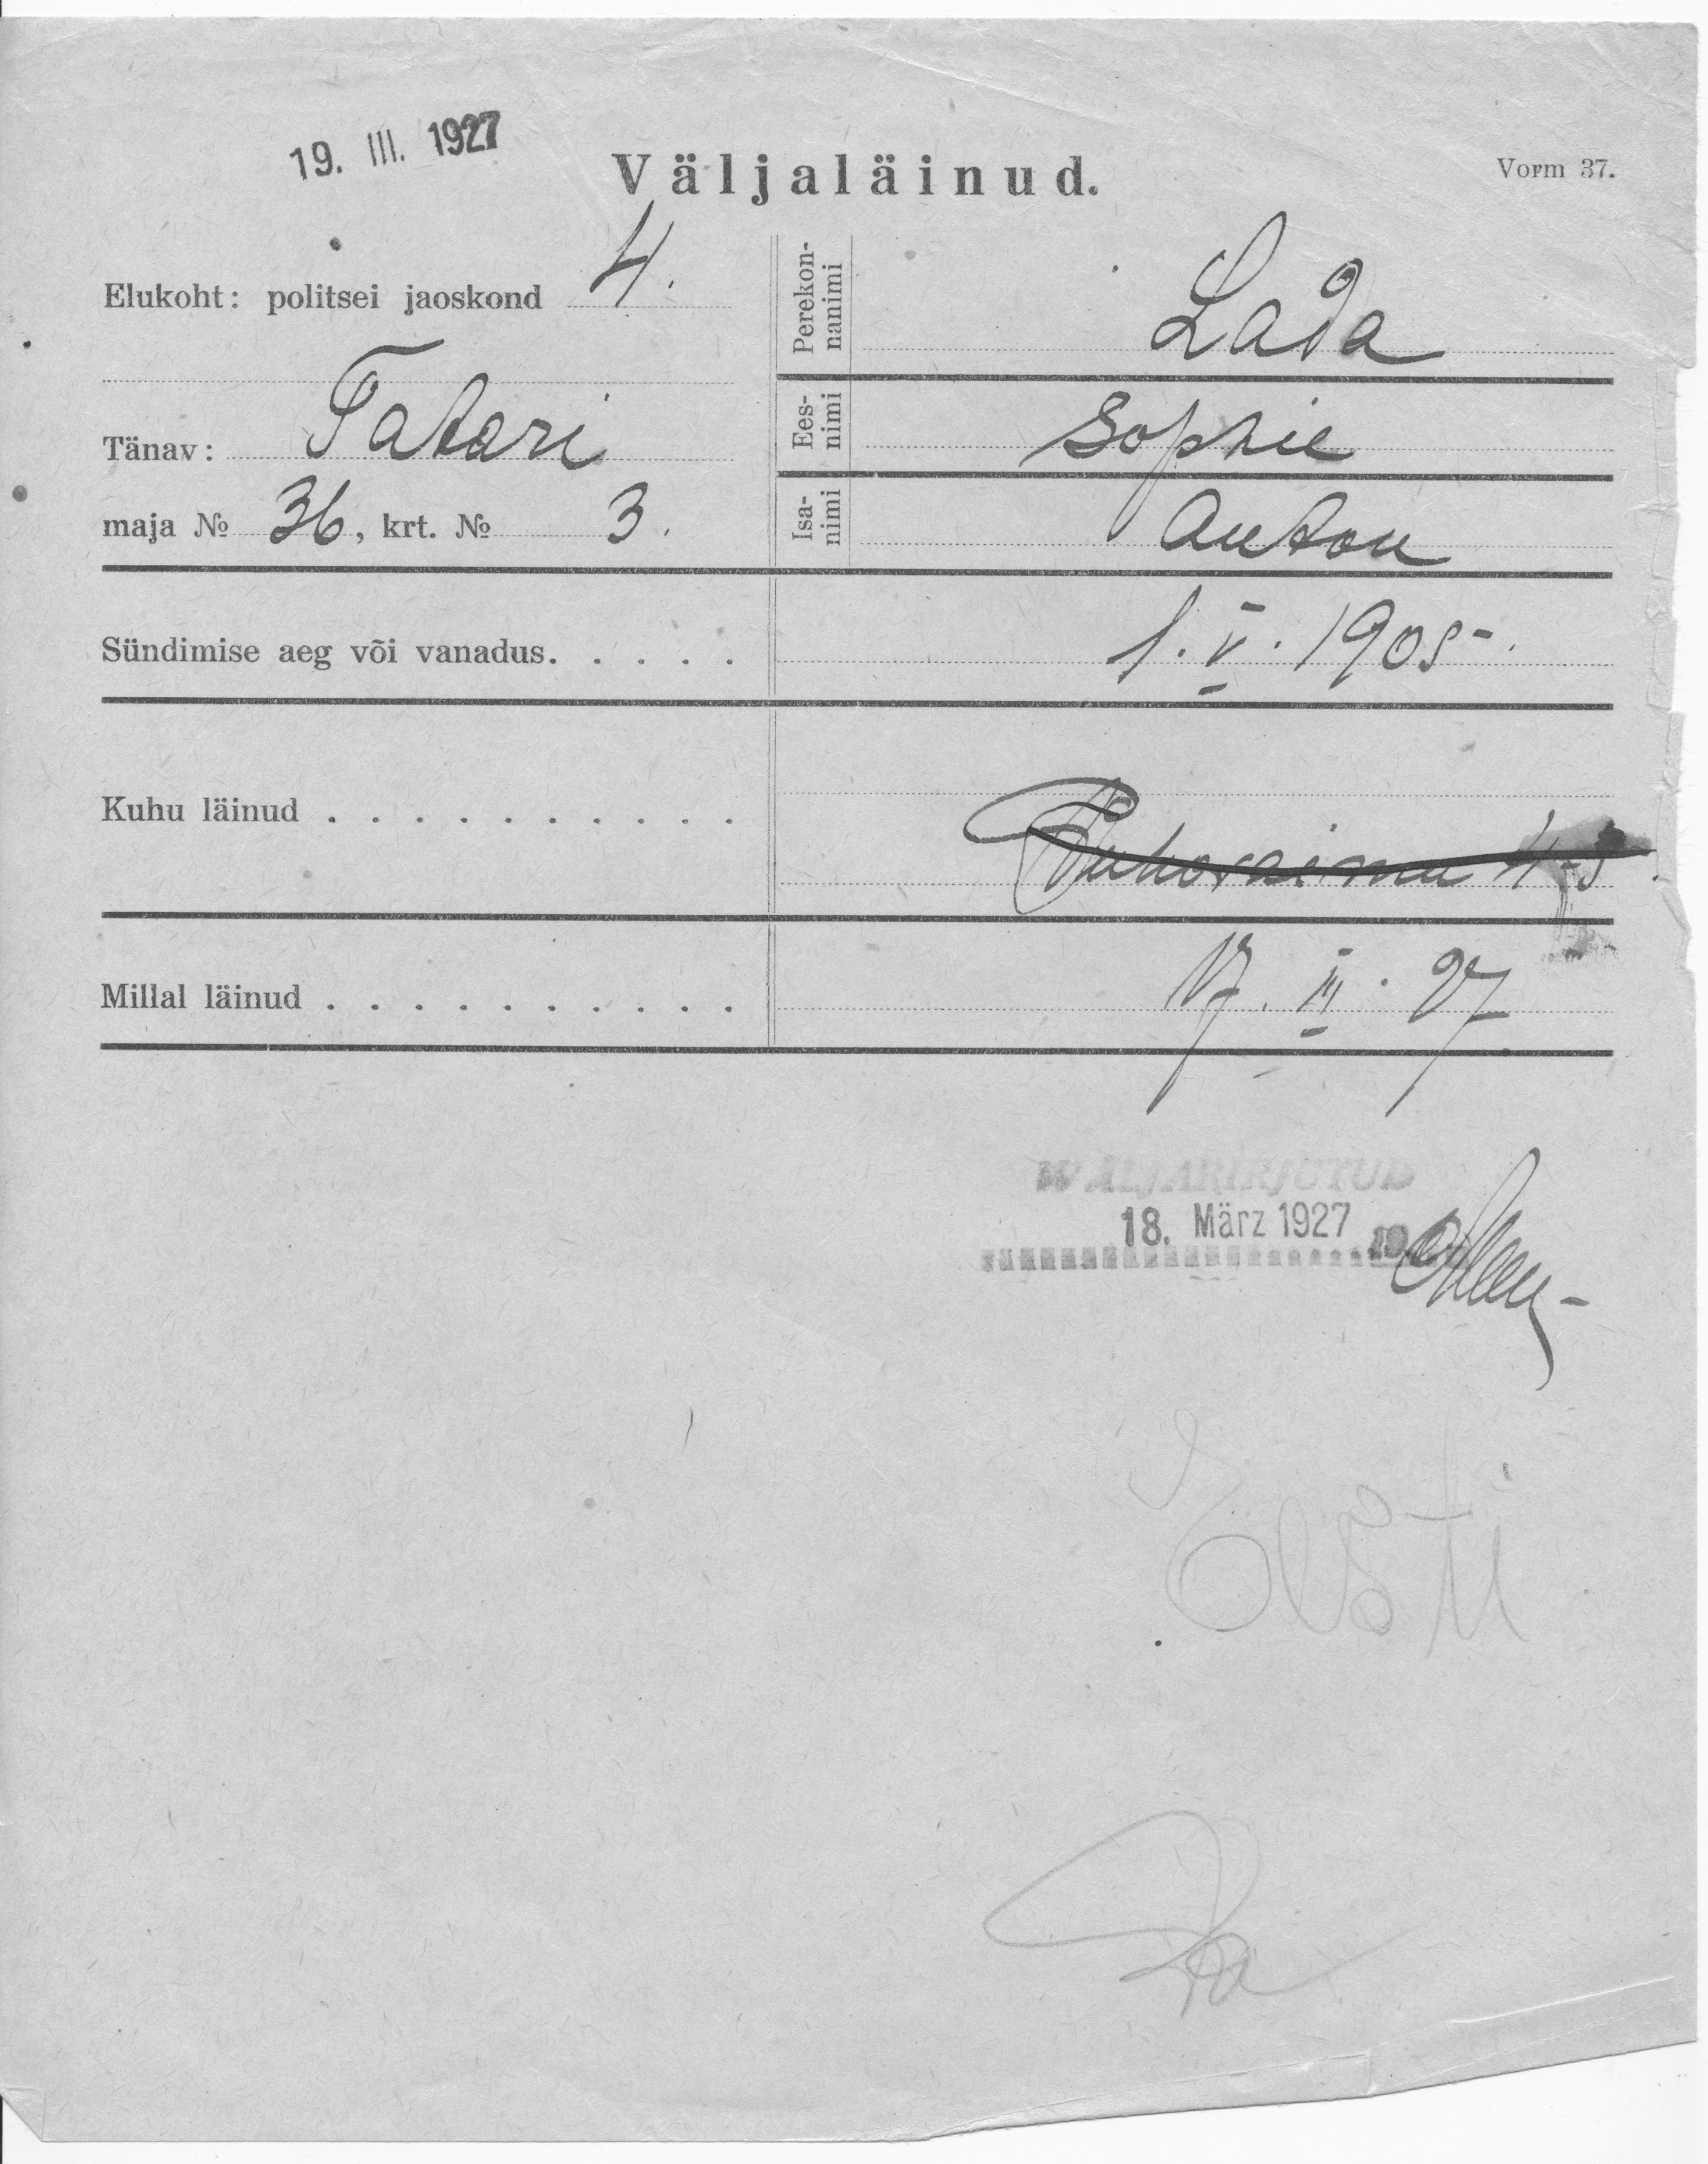 19. III. 1927
Väljaläinud.
Vorm 37.
Elukoht: politsei jaoskond 4.
Tänav: Tatari
maja № 36, krt. № 3.
Perekon-
nanimi
Lada
Ees-
nimi
Sophie
Isa-
nimi
Anton
Sündimise aeg või vanadus. . . . . 1. V. 1905.
Kuhu läinud . . . . . . . . . .
Millal läinud . . . . . . . . . . 17. III. 27
WÄLJAKIRJUTUD
18. März 1927 19
Eesti